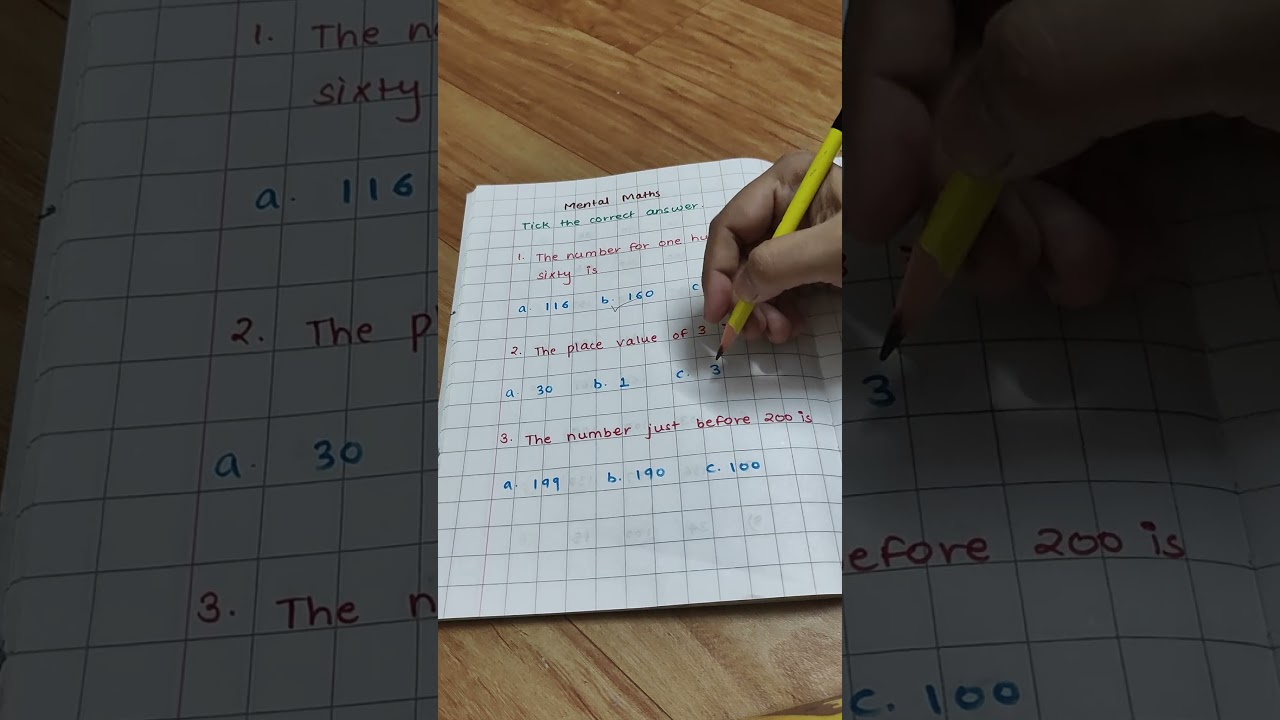 Mental Maths
Tick the correct answer.
1. The number for one hu
sixty is
a. 116 b. 160 c
2. The place value of 3
a. 30 b. 1 c. 3
3. The number just before 200 is
a. 199 b. 190 c. 100